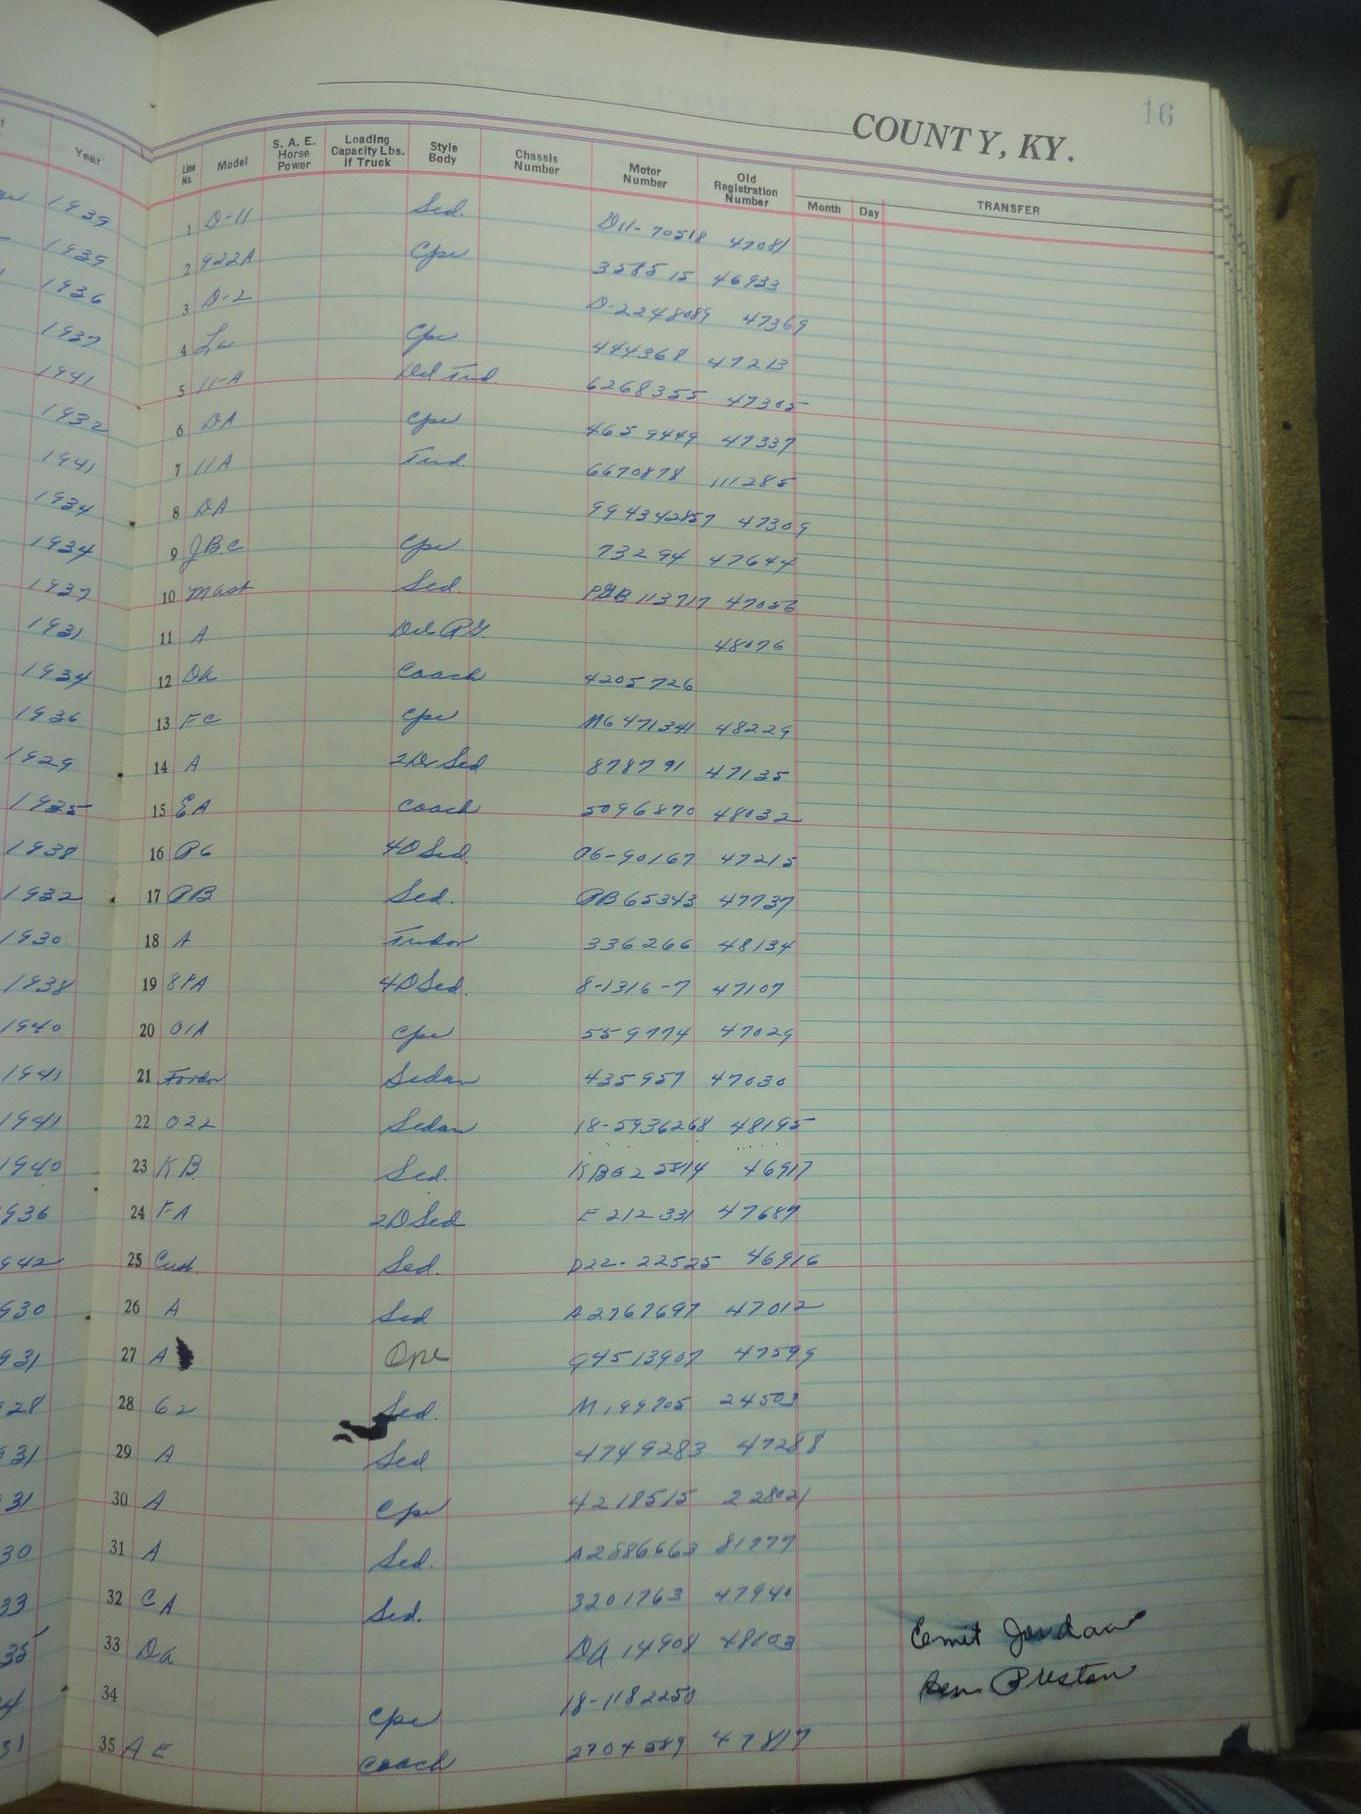 16
COUNTY, KY.
Year Line No. Model S. A. E. Horse Power Loading Capacity Lbs. if Truck Style Body Chassis Number Motor Number Old Registration Number Month Day TRANSFER
1939 1 D-11 Sed. D11-70518 47081
1939 2 922A Cpe 358515 46933
1936 3 D-2 D-2248089 47369
1937 4 Cpe 444368 47213
1941 5 11-A Del Tud. 6268355 47305
1932 6 DA Cpe 4659449 47337
1941 7 11A Tud. 6670878 111285
1934 8 DA 994342857 47309
1934 9 JBC Cpe 73294 47644
1937 10 Mast Sed. 113717 47056
1931 11 A Del 48076
1934 12 Da Coach 4205726
1936 13 FC Cpe M6471341 48229
1929 14 A 2Dr Sed 878791 47135
1935 15 EA Coach 5096870 48032
1938 16 P6 4D Sed. 06-90167 47215
1932 17 PB Sed. PB65343 47737
1930 18 A Tudor 336266 48134
1938 19 81A 4D Sed. 8-1316-7 47107
1940 20 01A Cpe 559774 47029
1941 21 Fordor Sedan 435957 47030
1941 22 022 Sedan 18-5936268 48195
1940 23 KB. Sed. KB025814 46917
936 24 FA 2D Sed E212331 47687
942 25 Cus. Sed. D22-22525 46916
930 26 A Sed A2767697 47012
931 27 A Cpe 94513907 47599
28 28 62 Sed. M199705 24503
31 29 A Sed 4749283 47288
31 30 A Cpe 4218515 228021
30 31 A Sed. A2886663 81777
33 32 CA Sed. 3201763 47940
35 33 Da DA14908 48103 Jordan
4 34 Cpe 18-1182250 Ben Preston
31 35 AE Coach 2704589 47817